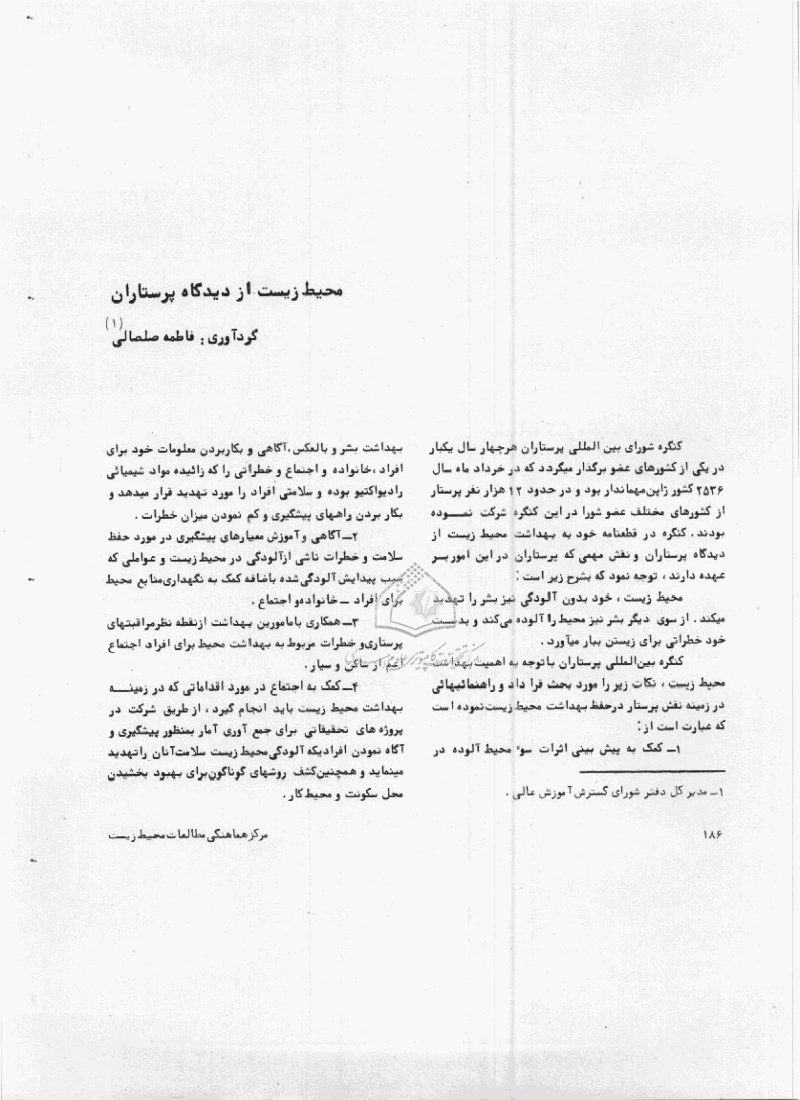 محیط زیست از دیدگاه پرستاران
گردآوری : فاطمه صلصالی (۱)
کنگره شورای بین المللی پرستاران هرچهار سال یکبار
در یکی از کشورهای عضو برگذار میگردد که در خرداد ماه سال
۲۵۳۶ کشور ژاپن مهماندار بود و در حدود ۱۲ هزار نفر پرستار
از کشورهای مختلف عضو شورا در این کنگره شرکت نمــوده
بودند . کنگره در قطعنامه خود به بهداشت محیط زیست از
دیدگاه پرستاران و نقش مهمی که پرستاران در این امور بــر
عهده دارند ، توجه نمود که بشرح زیر است :
محیط زیست ، خود بدون آلودگی نیز بشر را تهدید
میکند . از سوی دیگر بشر نیز محیط را آلوده می‌کند و بدست
خود خطراتی برای زیستن ببار میآورد .
کنگره بین‌المللی پرستاران با توجه به اهمیت بهداشت
محیط زیست ، نکات زیر را مورد بحث قرا داد و راهنمائیهائی
در زمینه نقش پرستار درحفظ بهداشت محیط زیست نموده است
که عبارت است از :
۱ــ کمک به پیش بینی اثرات سوء محیط آلوده در
۱ــ مدیر کل دفتر شورای گسترش آموزش عالی .
بهداشت بشر و بالعکس .آگاهی و بکاربردن معلومات خود برای
افراد ،خانواده و اجتماع و خطراتی را که زائیده مواد شیمیائی
رادیواکتیو بوده و سلامتی افراد را مورد تهدید قرار میدهد و
بکار بردن راههای پیشگیری و کم نمودن میزان خطرات .
۲ــ آگاهی و آموزش معیارهای پیشگیری در مورد حفظ
سلامت و خطرات ناشی ازآلودگی در محیط زیست و عواملی که
سبب پیدایش آلودگی شده باضافه کمک به نگهداری منابع محیط
برای افراد ــ خانواده و اجتماع .
۳ــ همکاری بامامورین بهداشت ازنقطه نظرمراقبتهای
پرستاری و خطرات مربوط به بهداشت محیط برای افراد اجتماع
اعم از ساکن و سیار .
۴ــ کمک به اجتماع در مورد اقداماتی که در زمینــه
بهداشت محیط زیست باید انجام گیرد ، از طریق شرکت در
پروژه های تحقیقاتی برای جمع آوری آمار بمنظور پیشگیری و
آگاه نمودن افرادیکه آلودگی محیط زیست سلامت آنان راتهدید
مینماید و همچنین کشف روشهای گوناگون برای بهبود بخشیدن
محل سکونت و محیط کار .
۱۸۶
مرکز هماهنگی مطالعات محیط زیست